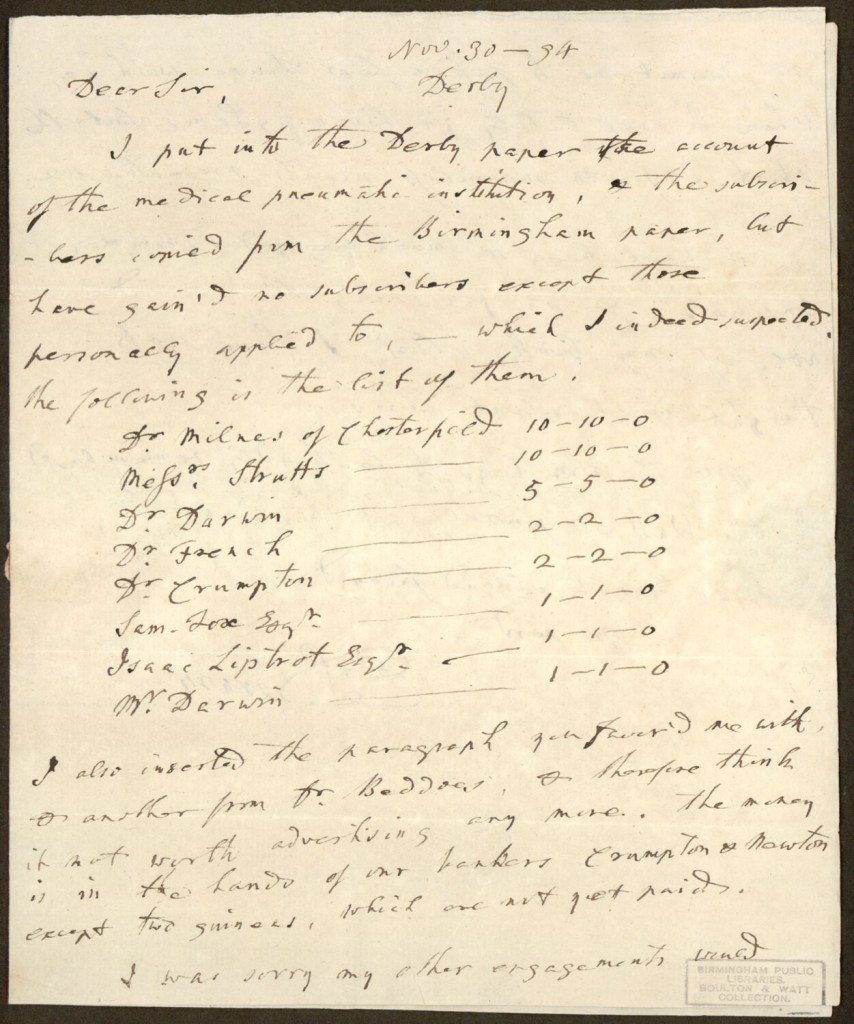 Nov. 30 — 94
Derby
Dear Sir,
I put into the Derby paper the account
of the medical pneumatic institution, & the subscri-
-bers copied from the Birmingham paper, but
have gain'd no subscribers except those
personally applied to, — which I indeed suspected.
the following is the list of them.
Dr. Milnes of Chesterfield 10 — 10 — 0
Messrs. Strutts —— 10 — 10 — 0
Dr. Darwin —— 5 — 5 — 0
Dr. French —— 2 — 2 — 0
Dr. Crumpton —— 2 — 2 — 0
Sam. Fox Esqr. —— 1 — 1 — 0
Isaac Liptrot Esqr. — 1 — 1 — 0
Mr. Darwin —— 1 — 1 — 0
I also inserted the paragraph you favor'd me with,
& another from Dr. Beddoes, & therefore think
it not worth advertising any more. The money
is in the hands of our bankers Crumpton & Newton
except two guineas, which are not yet paid.
I was sorry my other engagements would
BIRMINGHAM PUBLIC
LIBRARIES.
BOULTON & WATT
COLLECTION.